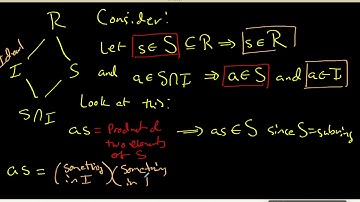 Consider:
R
Ideal
I
S
S∩I
Let s∈S ⊆R ⟹ s∈R
and a∈S∩I ⟹ a∈S and a∈I
Look at this:
as = Product of two elements of S ⟹ as∈S since S=subring
as = (something in I)(something in